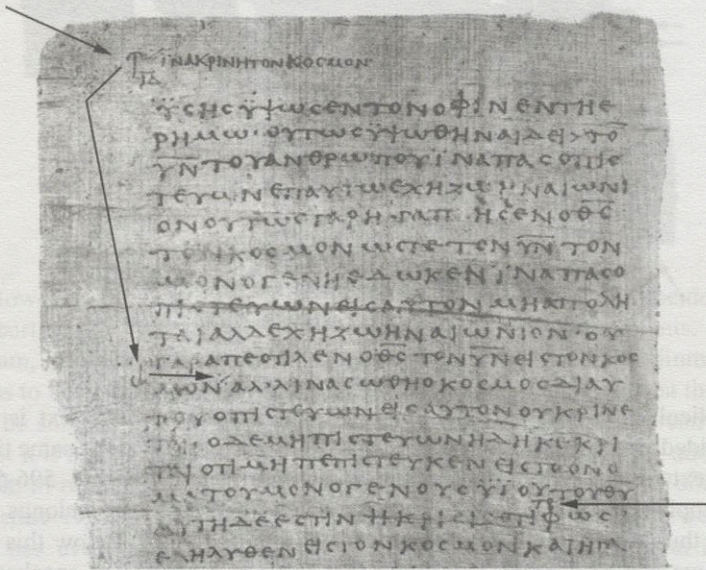 ΪΝΑΚΡΙΝΗΤΟΝΚΟϹΜΟΝ
ΙΔ
ΫϹΗϹΥΨΩϹΕΝΤΟΝΟΦΙΝΕΝΤΗΕ
ΡΗΜΩ·ΟΥΤΩϹΥΨΩΘΗΝΑΙΔΕΙΤΟ
Υ̅Ν̅ΤΟΥΑΝΘΡΩΠΟΥΪΝΑΠΑϹΟΠΙϹ
ΤΕΥΩΝΕΠΑΥΤΩΕΧΗΖΩΗΝΑΙΩΝΙ
ΟΝΟΥΤΩϹΓΑΡΗΓΑΠΗϹΕΝΟΘ̅Ϲ̅
ΤΟΝΚΟϹΜΟΝΩϹΤΕΤΟΝΥ̅Ν̅ΤΟΝ
ΜΟΝΟΓΕΝΗΕΔΩΚΕΝΪΝΑΠΑϹΟ
ΠΙϹΤΕΥΩΝΕΙϹΑΥΤΟΝΜΗΑΠΟΛΗ
ΤΑΙΑΛΛΕΧΗΖΩΗΝΑΙΩΝΙΟΝ·ΟΥ
ΓΑΡΑΠΕϹΤΙΛΕΝΟΘ̅Ϲ̅ΤΟΝΥ̅Ν̅ΕΙϹΤΟΝΚΟϹ
ΜΟΝΑΛΛΙΝΑϹΩΘΗΟΚΟϹΜΟϹΔΙΑΥ
ΤΟΥΟΠΙϹΤΕΥΩΝΕΙϹΑΥΤΟΝΟΥΚΡΙΝΕ
ΤΑΙ·ΟΔΕΜΗΠΙϹΤΕΥΩΝΗΔΗΚΕΚΡΙ
ΤΑΙΟΤΙΜΗΠΕΠΙϹΤΕΥΚΕΝΕΙϹΤΟΟΝΟ
ΜΑΤΟΥΜΟΝΟΓΕΝΟΥϹΥΪΟΥΤΟΥΘ̅Υ̅
ΤΟ
ΑΥΤΗΔΕΕϹΤΙΝΗΚΡΙϹΙϹΟΤΙΦΩϹ
ΕΛΗΛΥΘΕΝΕΙϹΤΟΝΚΟϹΜΟΝΚΑΙΗΓΑ